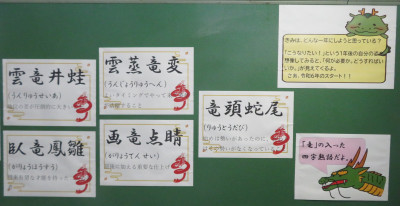 雲竜井蛙
(うんりゅうせいあ)
雲蒸竜変
(うんじょうりゅうへん)
竜頭蛇尾
(りゅうとうだび)
臥竜鳳雛
(がりょうほうすう)
画竜点睛
(がりょうてんせい)
きみは、どんな一年にしようと思っている?
「こうなりたい!」という1年後の自分の姿を
想像してみると、「何が必要か、どうすればい
いか。」が見えてくるよ。
さあ、令和6年のスタート!!
「竜」の入った
四字熟語だよ。